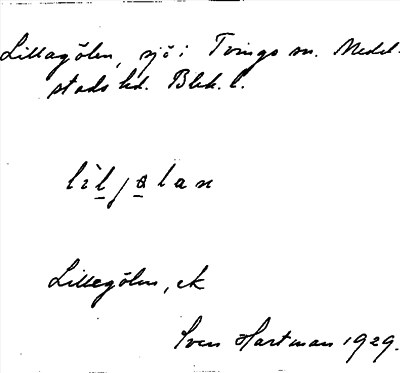 Lillagölen, sjö i Tvings sn. Medel-
stads hd. Blek. l.
lìljølan
Lillegölen, ek
Sven Hartman 1929.